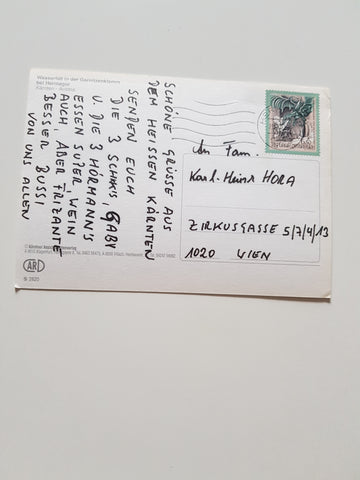 Wasserfall in der Garnitzenklamm
bei Hermagor
Kärnten - Austria
SCHÖNE GRÜSSE AUS
DEM HEISSEN KÄRNTEN
SENDEN EUCH
DIE 3 SCHKUS, GABY
U. DIE 3 HÖRMANN'S
ESSEN SUTER, WEIN
AUCH, ABER FRIZANTE
BESSER BUSSI
VON UNS ALLEN
An Fam.
Karl-Heinz HORA
ZIRKUSGASSE 5/7/4/13
1020 WIEN